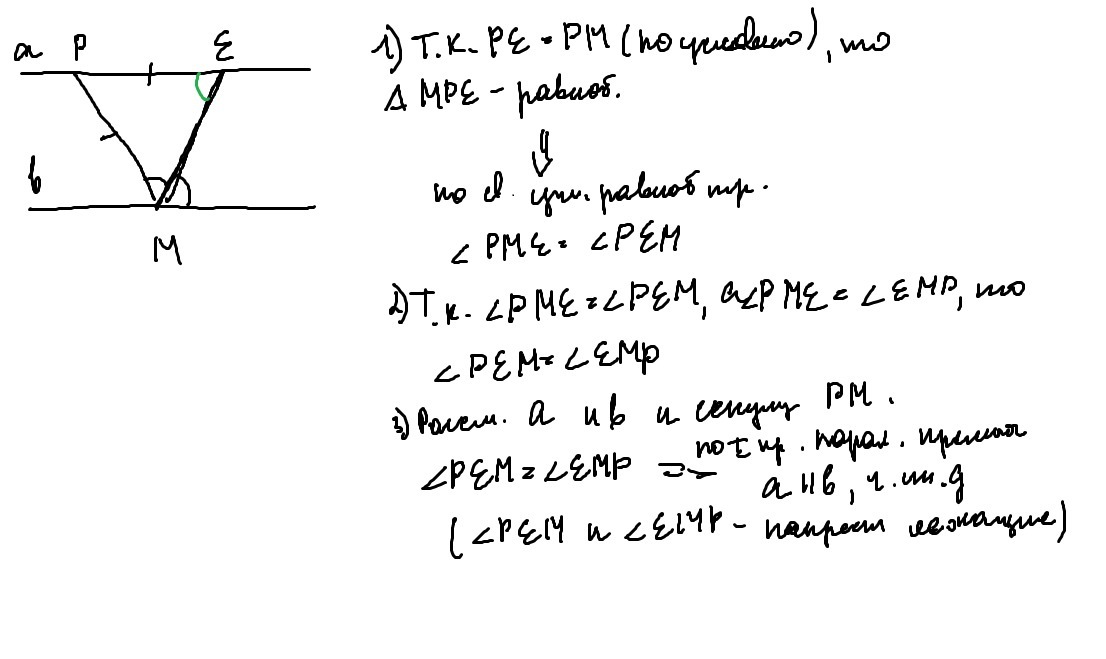 a P E
в
M
1) Т.к. PE = PM (по условию), то
Δ MPE - равноб.
⇓
по св. угл. равноб тр.
∠ PME = ∠PEM
2) Т.к. ∠PME = ∠PEM, а ∠PME = ∠EMP, то
∠PEM = ∠EMP
3) Рассм. a и в и секущ PM.
∠PEM = ∠EMP ⇒ по I пр. парал. прямых
a II в, ч.т.д
(∠PEM и ∠EMP - накрест лежащие)